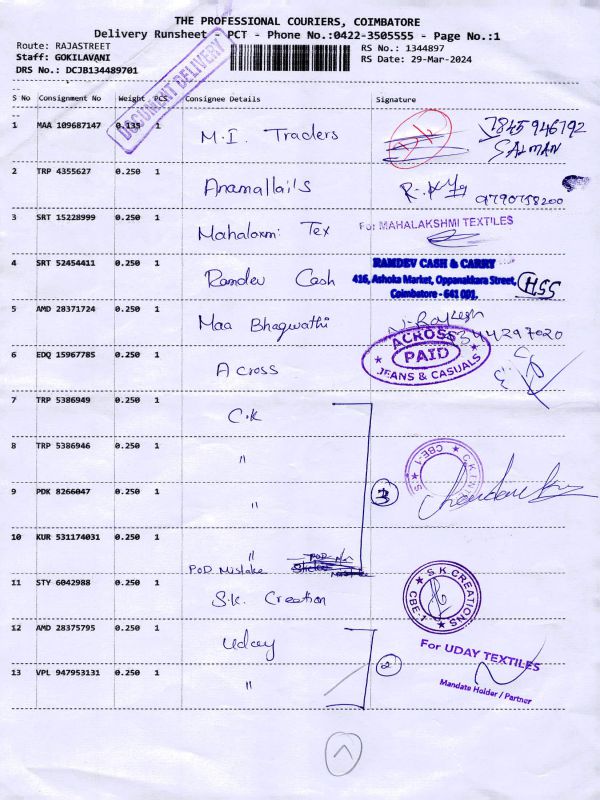 THE PROFESSIONAL COURIERS, COIMBATORE
Delivery Runsheet - PCT - Phone No.:0422-3505555 - Page No.:1
Route: RAJASTREET
RS No.: 1344897
Staff: GOKILAVANI
RS Date: 29-Mar-2024
DRS No.: DCJB134489701
DOCUMENT DELIVERY
S No Consignment No Weight PCS Consignee Details Signature
1 MAA 109687147 0.135 1 M.I. Traders 7845946792
SALMAN
2 TRP 4355627 0.250 1 Anamallais 9790758200
3 SRT 15228999 0.250 1 Mahalaxmi Tex For MAHALAKSHMI TEXTILES
4 SRT 52454411 0.250 1 Ramdev Cash RAMDEV CASH & CARRY
416, Ashoka Market, Oppanakkara Street,
Coimbatore - 641 001.
HSS
5 AMD 28371724 0.250 1 Maa Bhagwathi N. Rakesh
344297020
6 EDQ 15967785 0.250 1 Across ACROSS
PAID
JEANS & CASUALS
7 TRP 5386949 0.250 1 C.K
8 TRP 5386946 0.250 1 "
CBE-1
9 PDK 8266047 0.250 1 " 3
10 KUR 531174031 0.250 1 "
POD Mistake
11 STY 6042988 0.250 1 S.K. Creation S.K.CREATIONS
CBE-1
12 AMD 28375795 0.250 1 Uday For UDAY TEXTILES
13 VPL 947953131 0.250 1 " 2
Mandate Holder / Partner